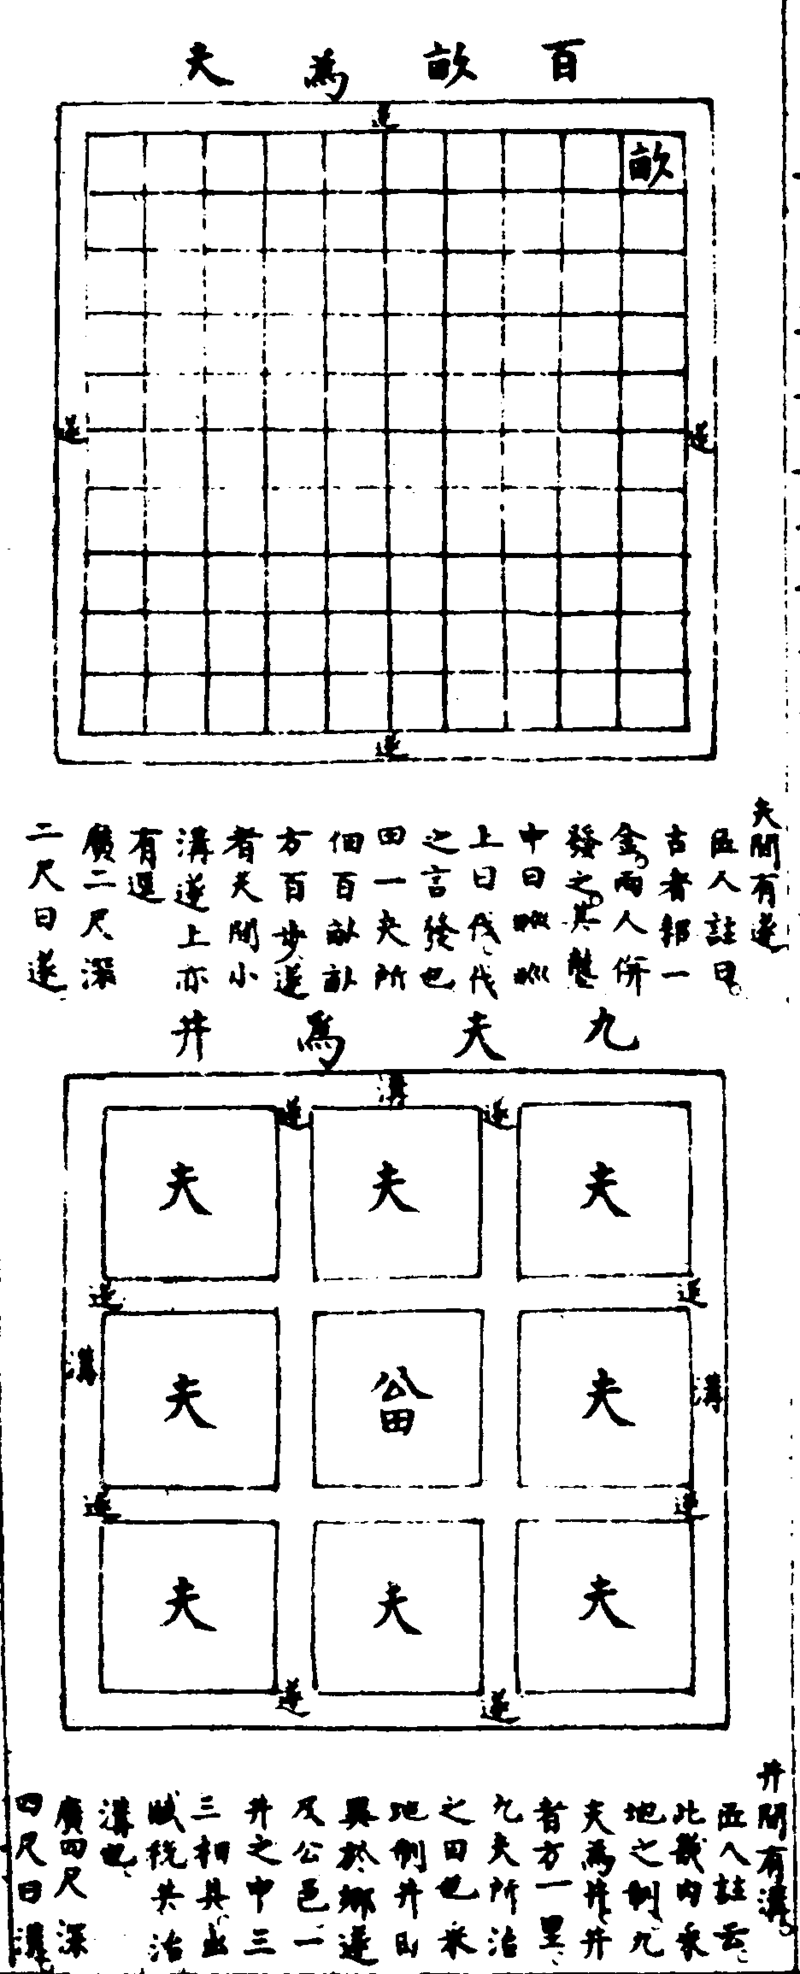 百畝為夫
遂
畝
遂
遂
遂
夫間有遂
匠人註曰
古者耜一
金兩人併
發之其壟
中曰畎畎
上曰伐伐
之言發也
田一夫所
佃百畝畝
方百步遂
者夫間小
溝遂上亦
有逕
廣二尺深
二尺曰遂
九夫為井
溝
遂
遂
夫
夫
夫
遂
遂
夫
公田
夫
溝
溝
遂
遂
夫
夫
夫
遂
遂
井間有溝
匠人註云
此畿内采
地之制九
夫為井井
者方一里
九夫所治
之田也采
地制井田
異於鄉遂
及公邑一
井之中三
三相具出
賦稅共治
溝也
廣四尺深
四尺曰溝